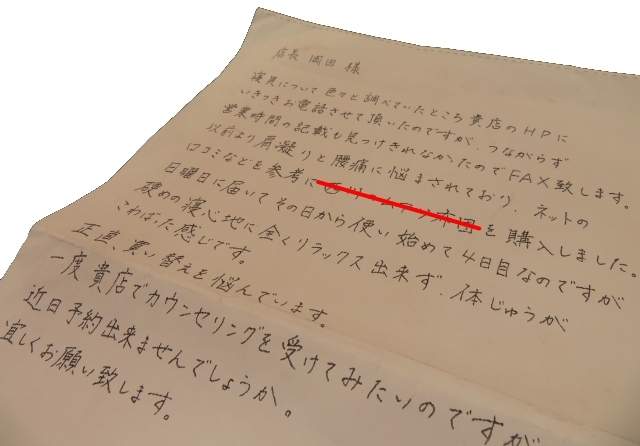 店長 岡田 様
寝具について色々と調べていたところ貴店のHPに
いきつきお電話させて頂いたのですが、つながらず
営業時間の記載も見つけきれなかったのでFAX致します。
以前より肩凝りと腰痛に悩まされており、ネットの
口コミなどを参考に を購入しました。
日曜日に届いてその日から使い始めて4日目なのですが
硬めの寝心地に全くリラックス出来ず、体じゅうが
こわばった感じです。
正直、買い替えを悩んでいます。
一度貴店でカウンセリングを受けてみたいのですが
近日予約出来ませんでしょうか。
宜しくお願い致します。